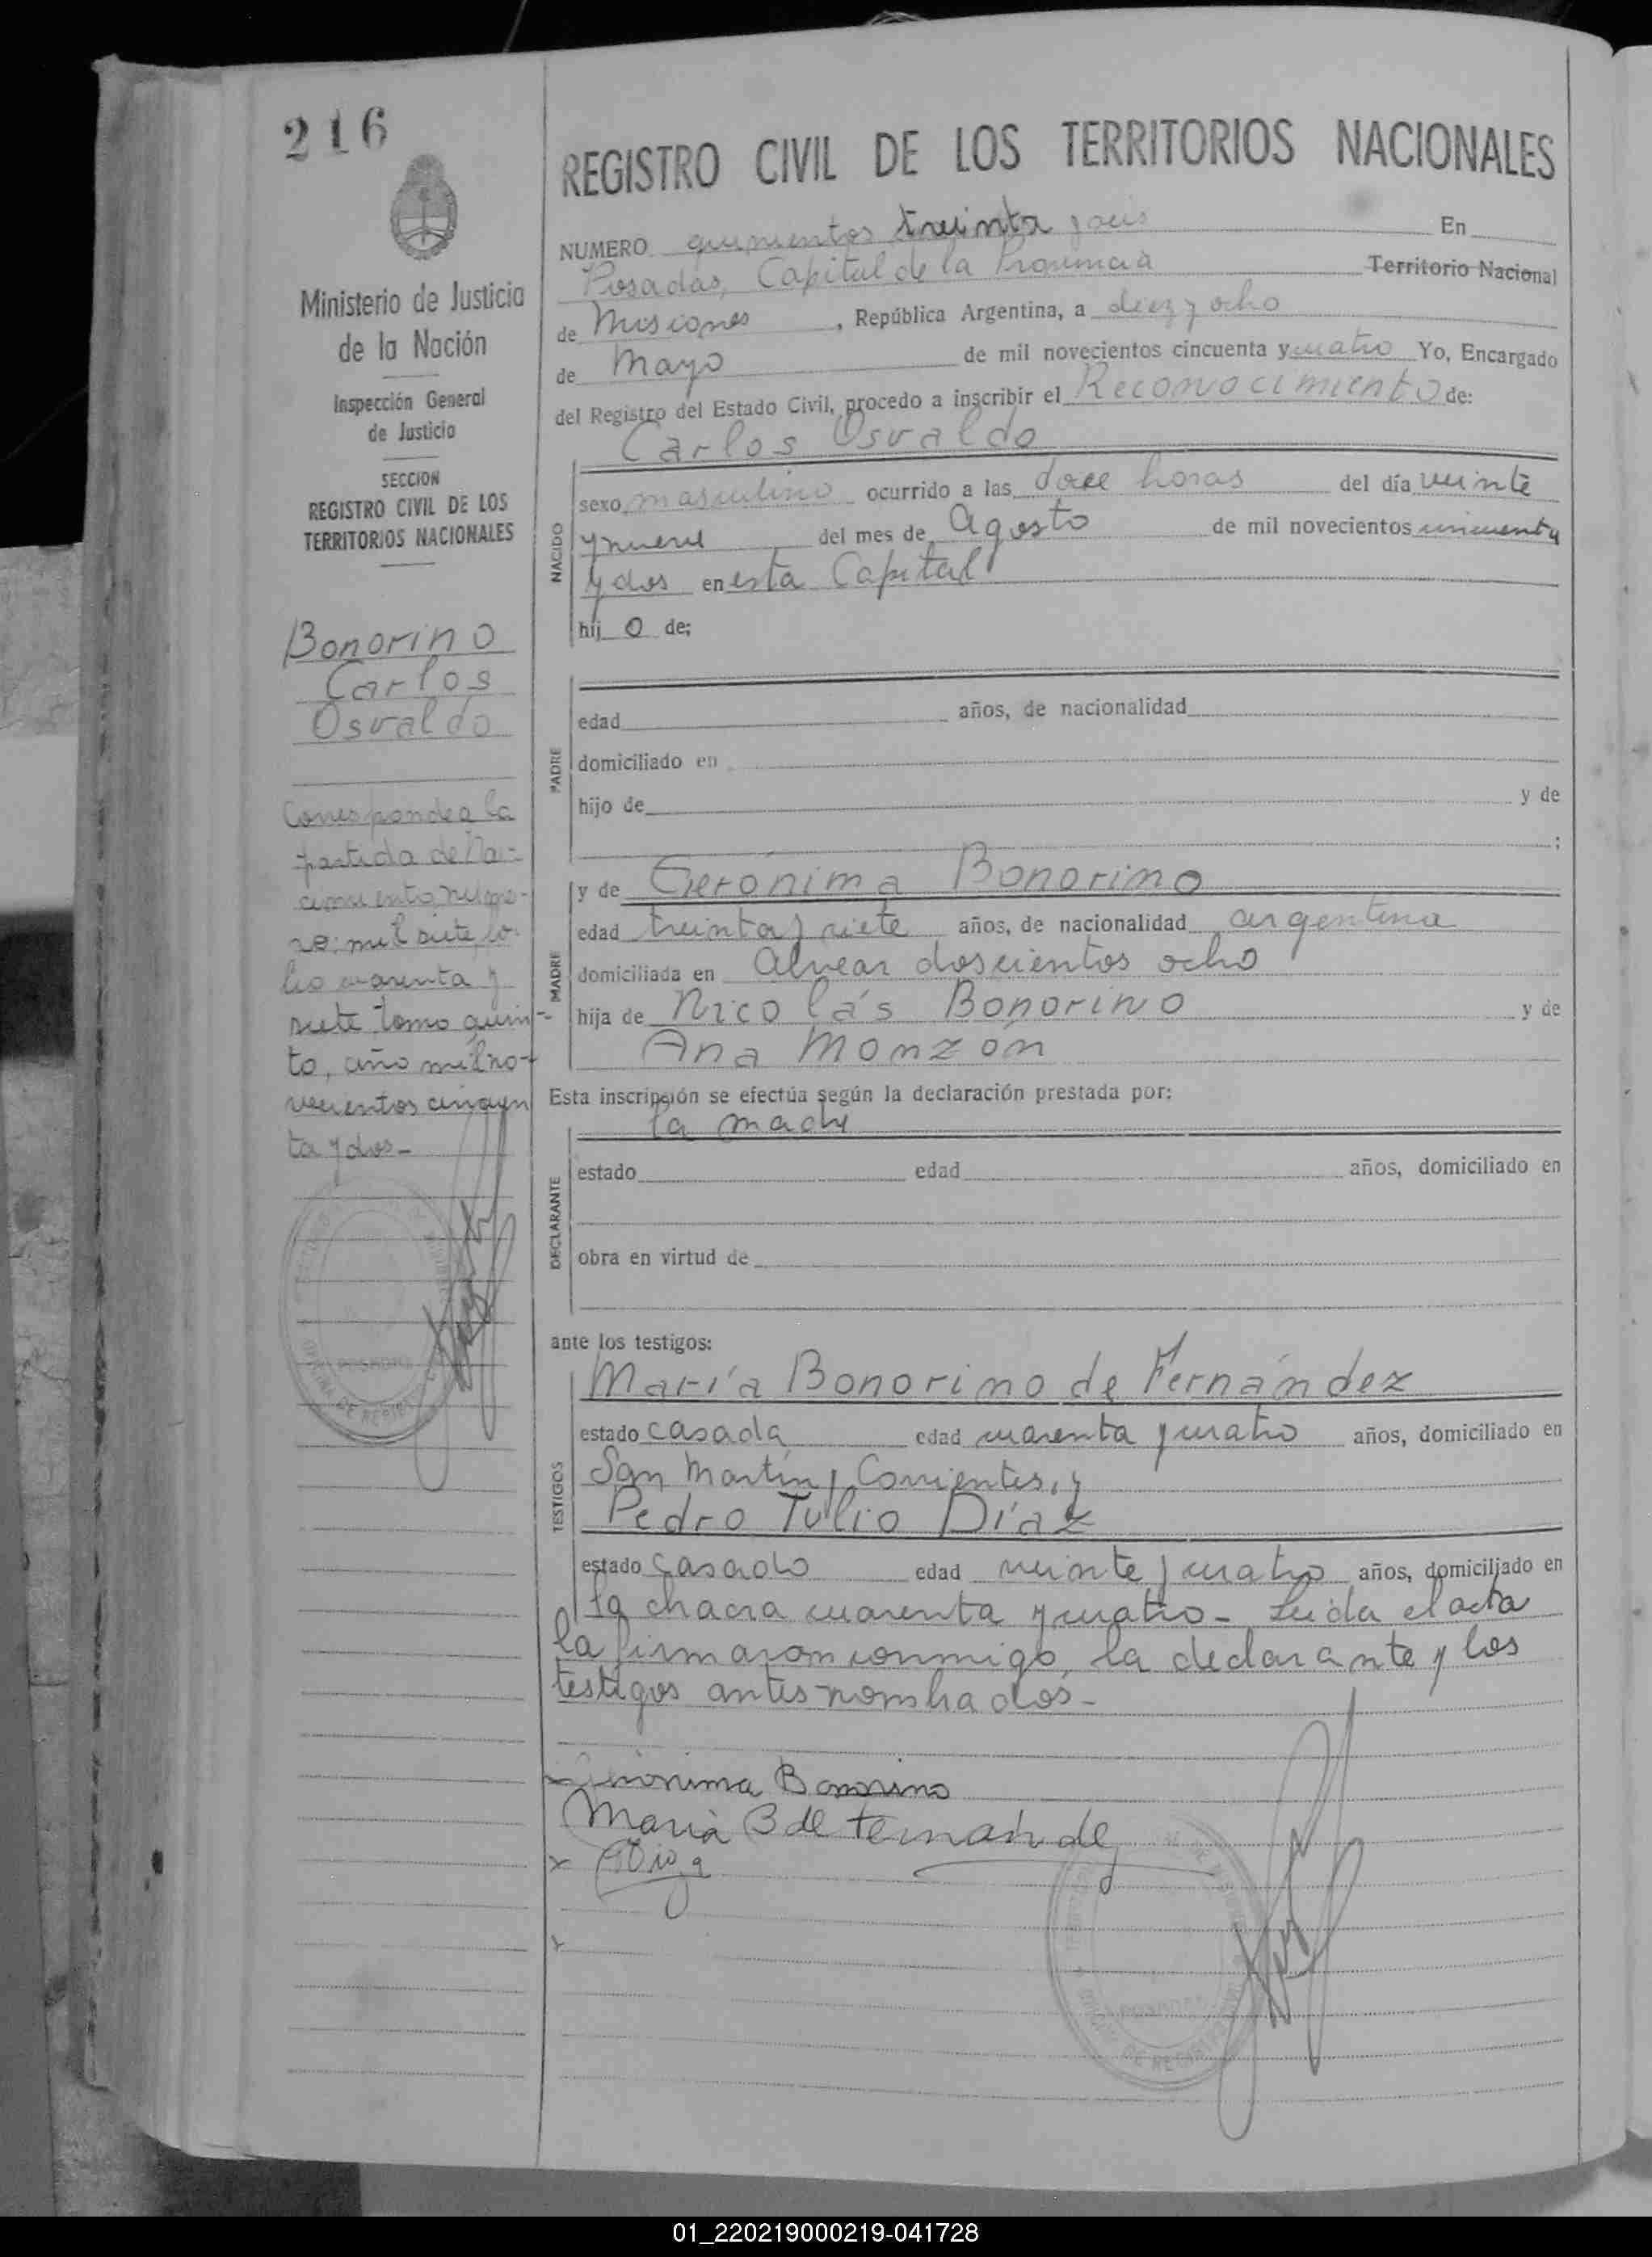 216
Ministerio de Justicia
de la Nación
Inspección General
de Justicia
SECCION
REGISTRO CIVIL DE LOS
TERRITORIOS NACIONALES
Bonorino
Carlos
Osvaldo
Corresponde a la
partida de Na-
cimiento, núme-
ro: mil siete, fo-
lio cuarenta y
siete tomo quin-
to, año mil no-
vecientos cincuen
ta y dos-
REGISTRO CIVIL DE LOS TERRITORIOS NACIONALES
NUMERO quinientos treinta y seis En
Posadas, Capital de la Provincia Territorio Nacional
de Misiones, República Argentina, a diez y ocho
de Mayo de mil novecientos cincuenta y cuatro Yo, Encargado
del Registro del Estado Civil, procedo a inscribir el Reconocimiento de:
Carlos Osvaldo
NACIDO
sexo masculino ocurrido a las doce horas del día veinte
y nueve del mes de Agosto de mil novecientos cincuenta
y dos en esta Capital
hij o de;
PADRE
edad años, de nacionalidad
domiciliado en
hijo de y de
;
MADRE
y de Gerónima Bonorino
edad treinta y siete años, de nacionalidad argentina
domiciliada en Alvear doscientos ocho
hija de Nicolás Bonorino y de
Ana Monzón
Esta inscripción se efectúa según la declaración prestada por:
la madre
DECLARANTE
estado edad años, domiciliado en
obra en virtud de
ante los testigos:
TESTIGOS
María Bonorino de Fernández
estado casada edad cuarenta y cuatro años, domiciliado en
San Martín, Corrientes, y
Pedro Tulio Díaz
estado casado edad veinte y cuatro años, domiciliado en
la chacra cuarenta y cuatro- Leída el acta
la firmaron conmigo, la declarante y los
testigos antes nombrados-
Gerónima Bonorino
Maria B de Fernandez
01_220219000219-041728